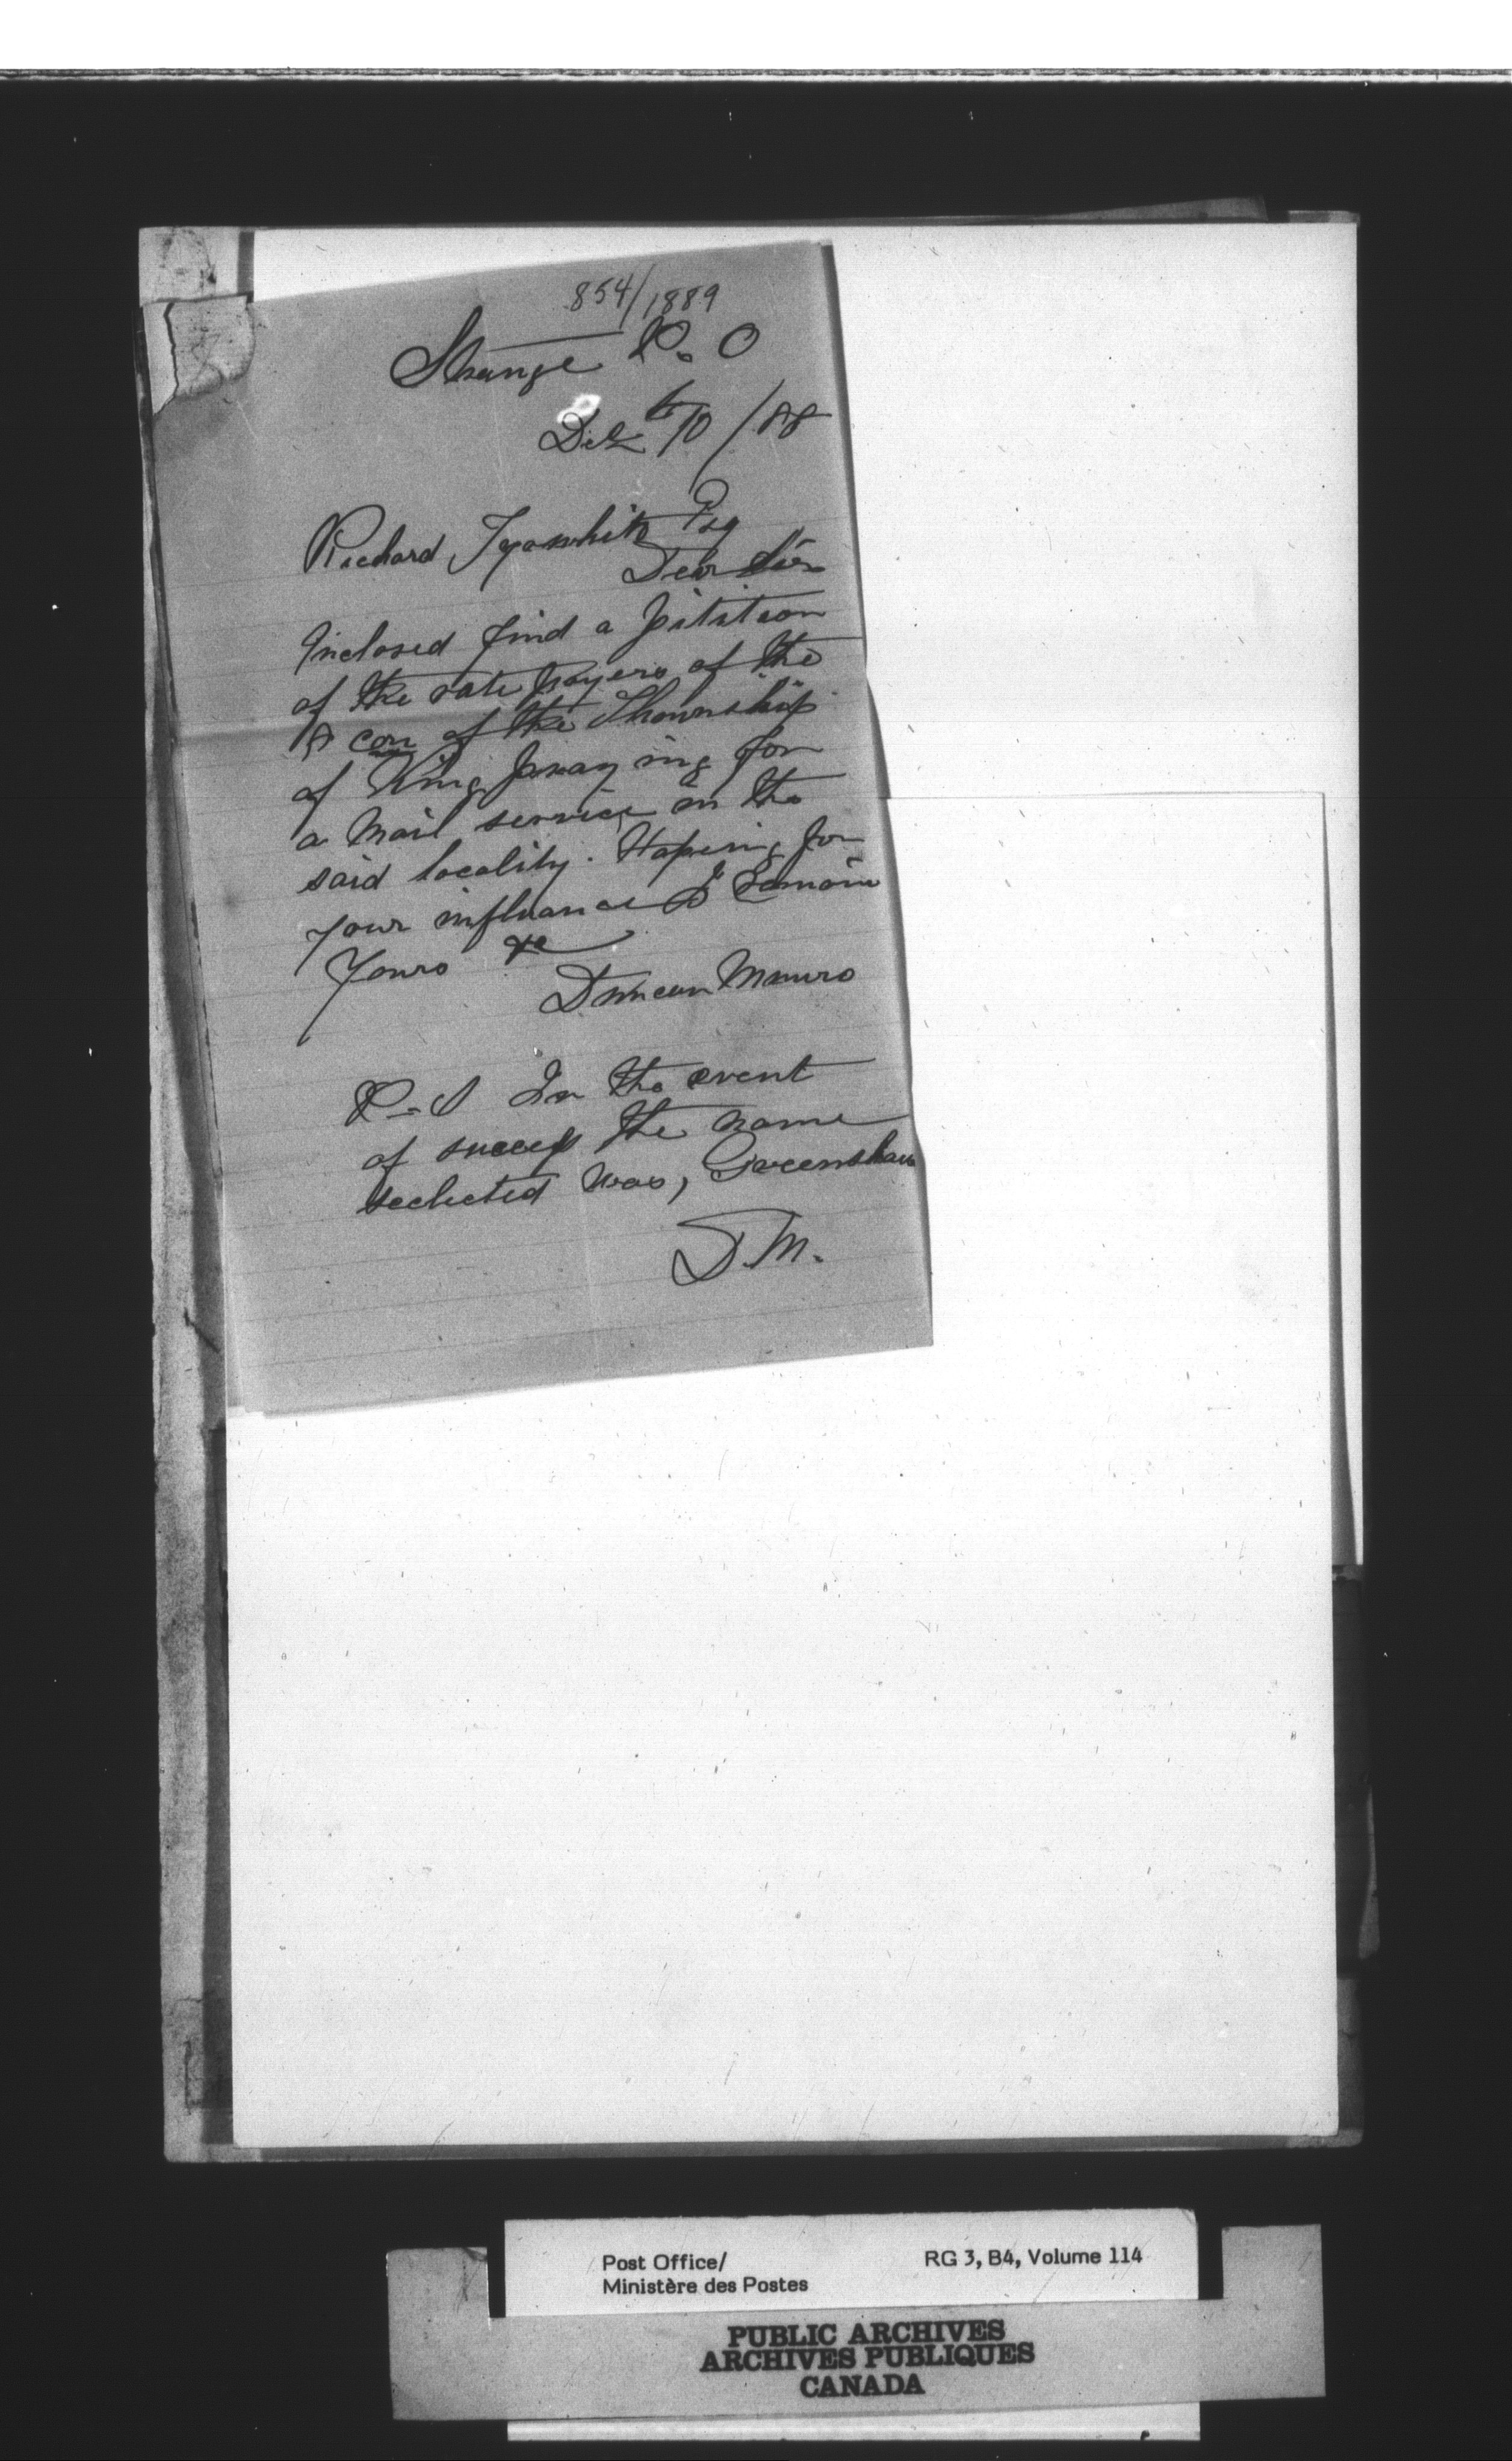 854/1889
Strange P. O
Dec 10th /88
Richard Tyrwhitt Esq
Dear Sir
Inclosed find a pitition
of the rate payers of the
8 con of the Thownship
of King praying for
a Mail service in the
said locality. Hoping for
your influance I Remain
Yours &c
Duncan Munro
P-S In the event
of success the name
seclected was, Greenshaw
D. M.
Post Office/
Ministère des Postes
RG 3, B4, Volume 114
PUBLIC ARCHIVES
ARCHIVES PUBLIQUES
CANADA